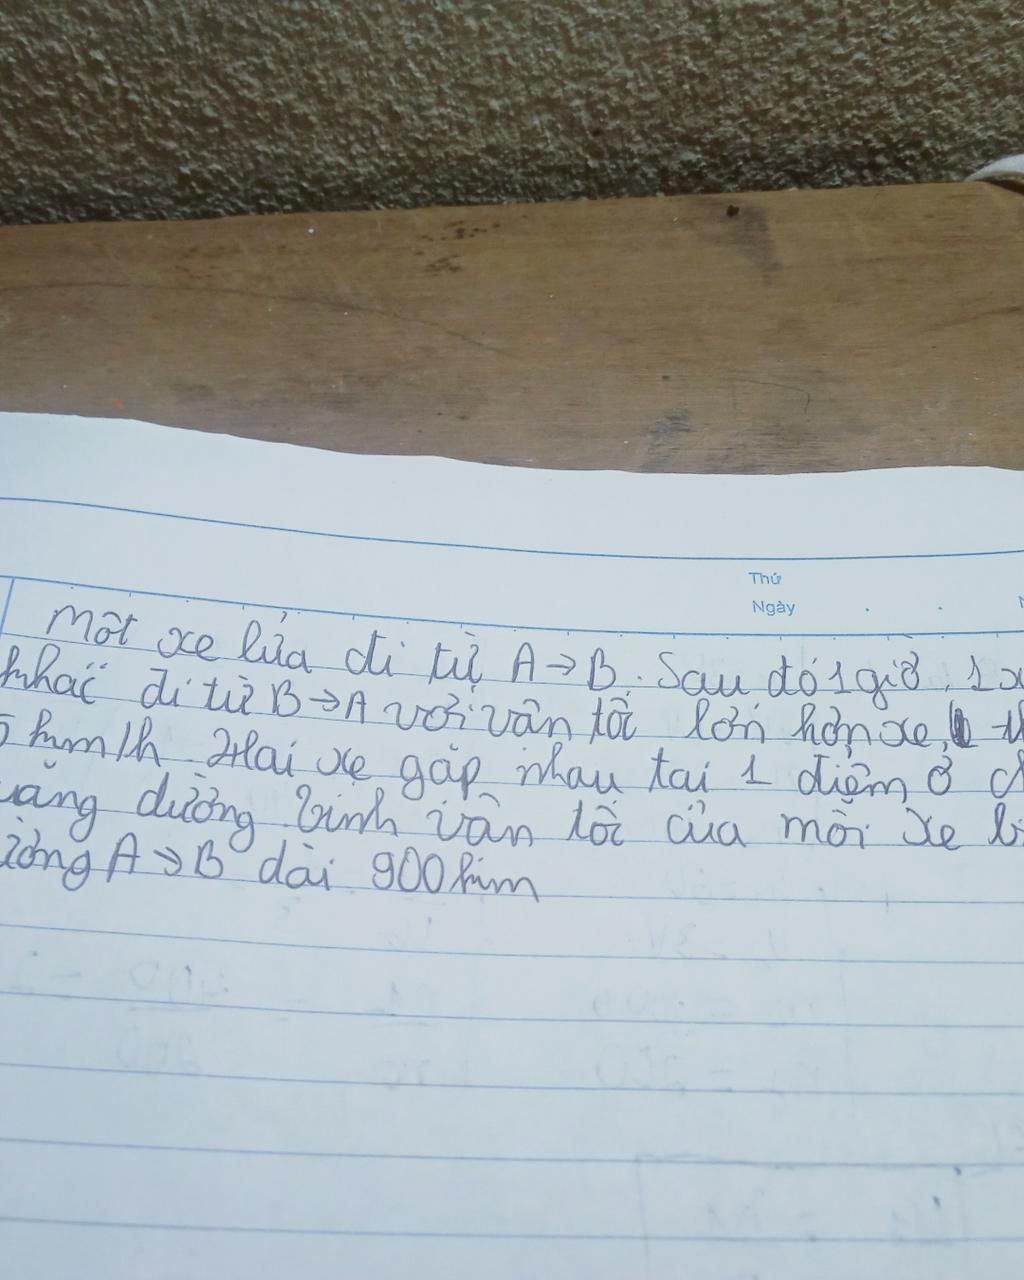 Thứ
Ngày
Một xe lửa đi từ A → B. Sau đó 1 giờ, 1
khác đi từ B → A với vân tốc lớn hơn xe
5 km/h Hai xe gặp nhau tại 1 điểm ở
đường tính vân tốc của mỗi xe
A → B dài 900 km